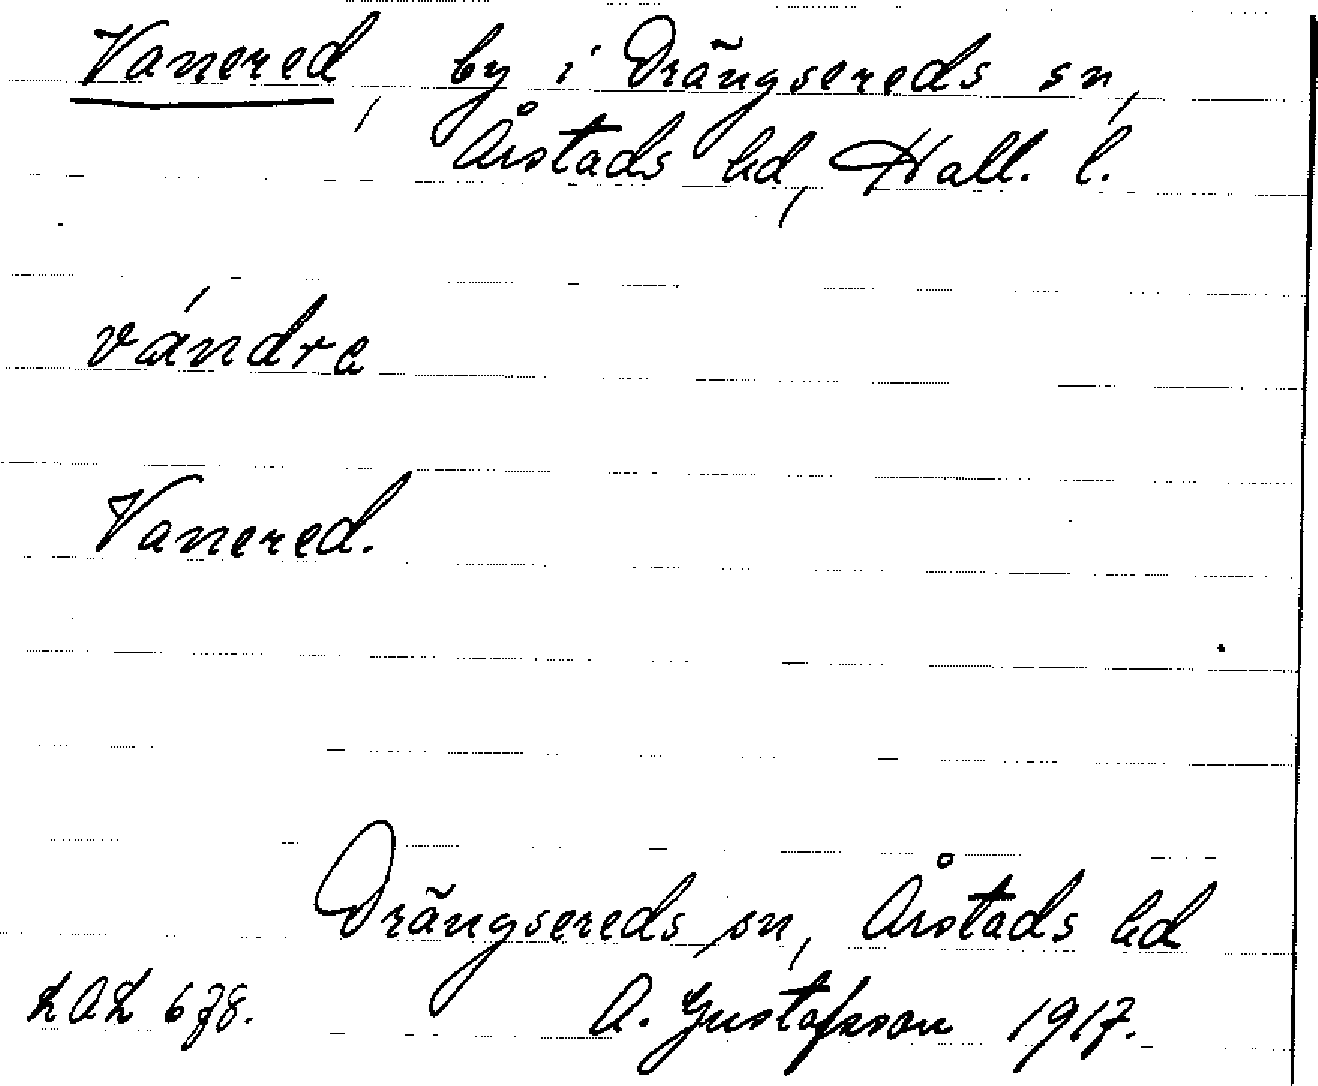 Vanered, by i Drängsereds sn,
Årstads hd, Hall. l.
vándra
Vanered.
Drängsereds sn, Årstads hd
LAL 678. A. Gustafsson 1917.